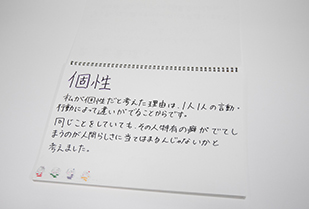 個性
私が個性だと考えた理由は、1人1人の言動・
行動によって違いがでることからです。
同じことをしていても、その人特有の癖がでてし
まうのが人間らしさに当てはまるんじゃないかと
考えました。